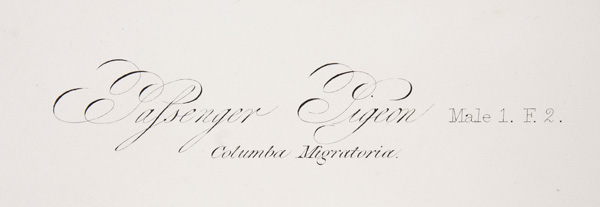 Passenger Pigeon Male 1. F. 2.
Columba Migratoria.